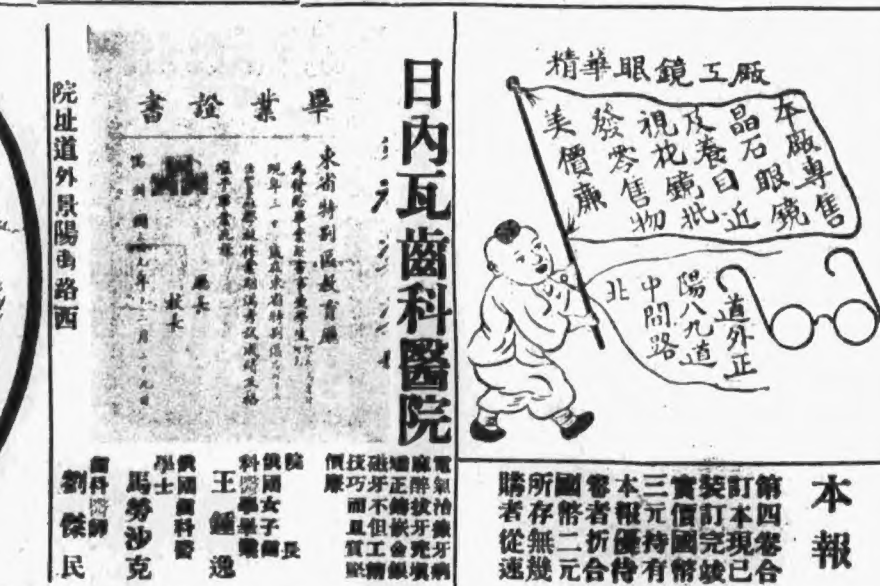 精華眼鏡工厰
本厰專售
晶石眼鏡
及養目近
視花鏡批
發零售物
美價廉
道外正
陽八九道
中間路
北
本報
第四卷合
訂本現已
裝訂完竣
實價國幣
三元持有
本報優待
券者折合
國幣二元
所存無幾
購者從速
日內瓦齒科醫院
畢業證書
東省特別區教育廳
廳長
校長
電氣治療牙病
麻醉拔牙充填
矯正鑄嵌金銀
磁牙不但工精
技巧而且質堅
價廉
院長
俄國女子齒
科醫學畢業
王鍾逸
俄國齒科醫
學士
馬勞沙克
齒科醫師
劉傑民
院址道外景陽街路西